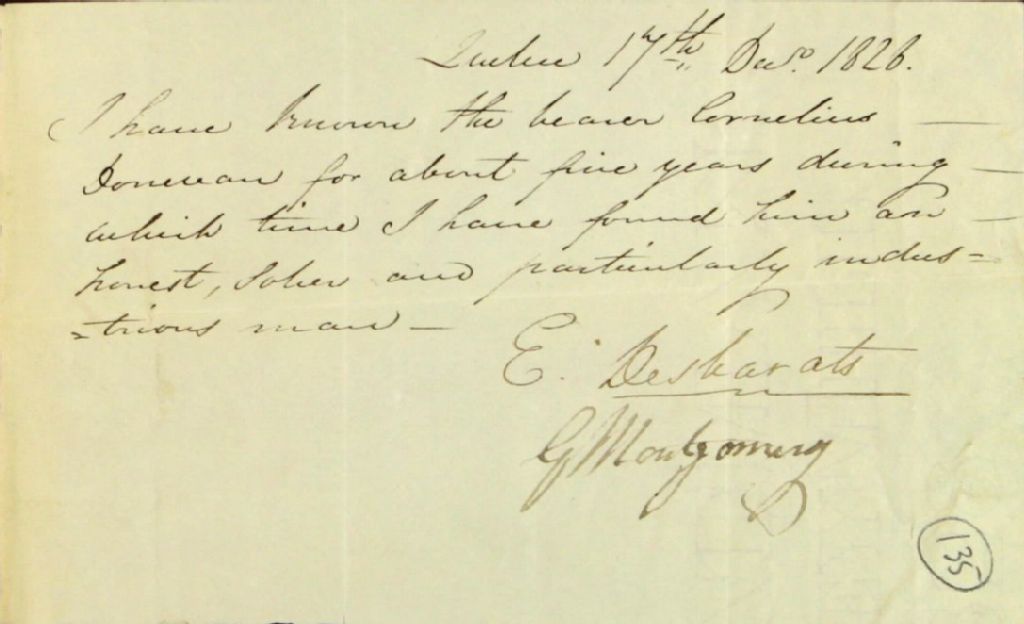 Quebec 17th Decr. 1828.
I have known the bearer Cornelius —
Donevan for about five years during —
which time I have found him an —
honest, sober and particularly indus=
=trious man —
E. Desbarats
G Montgomery
135